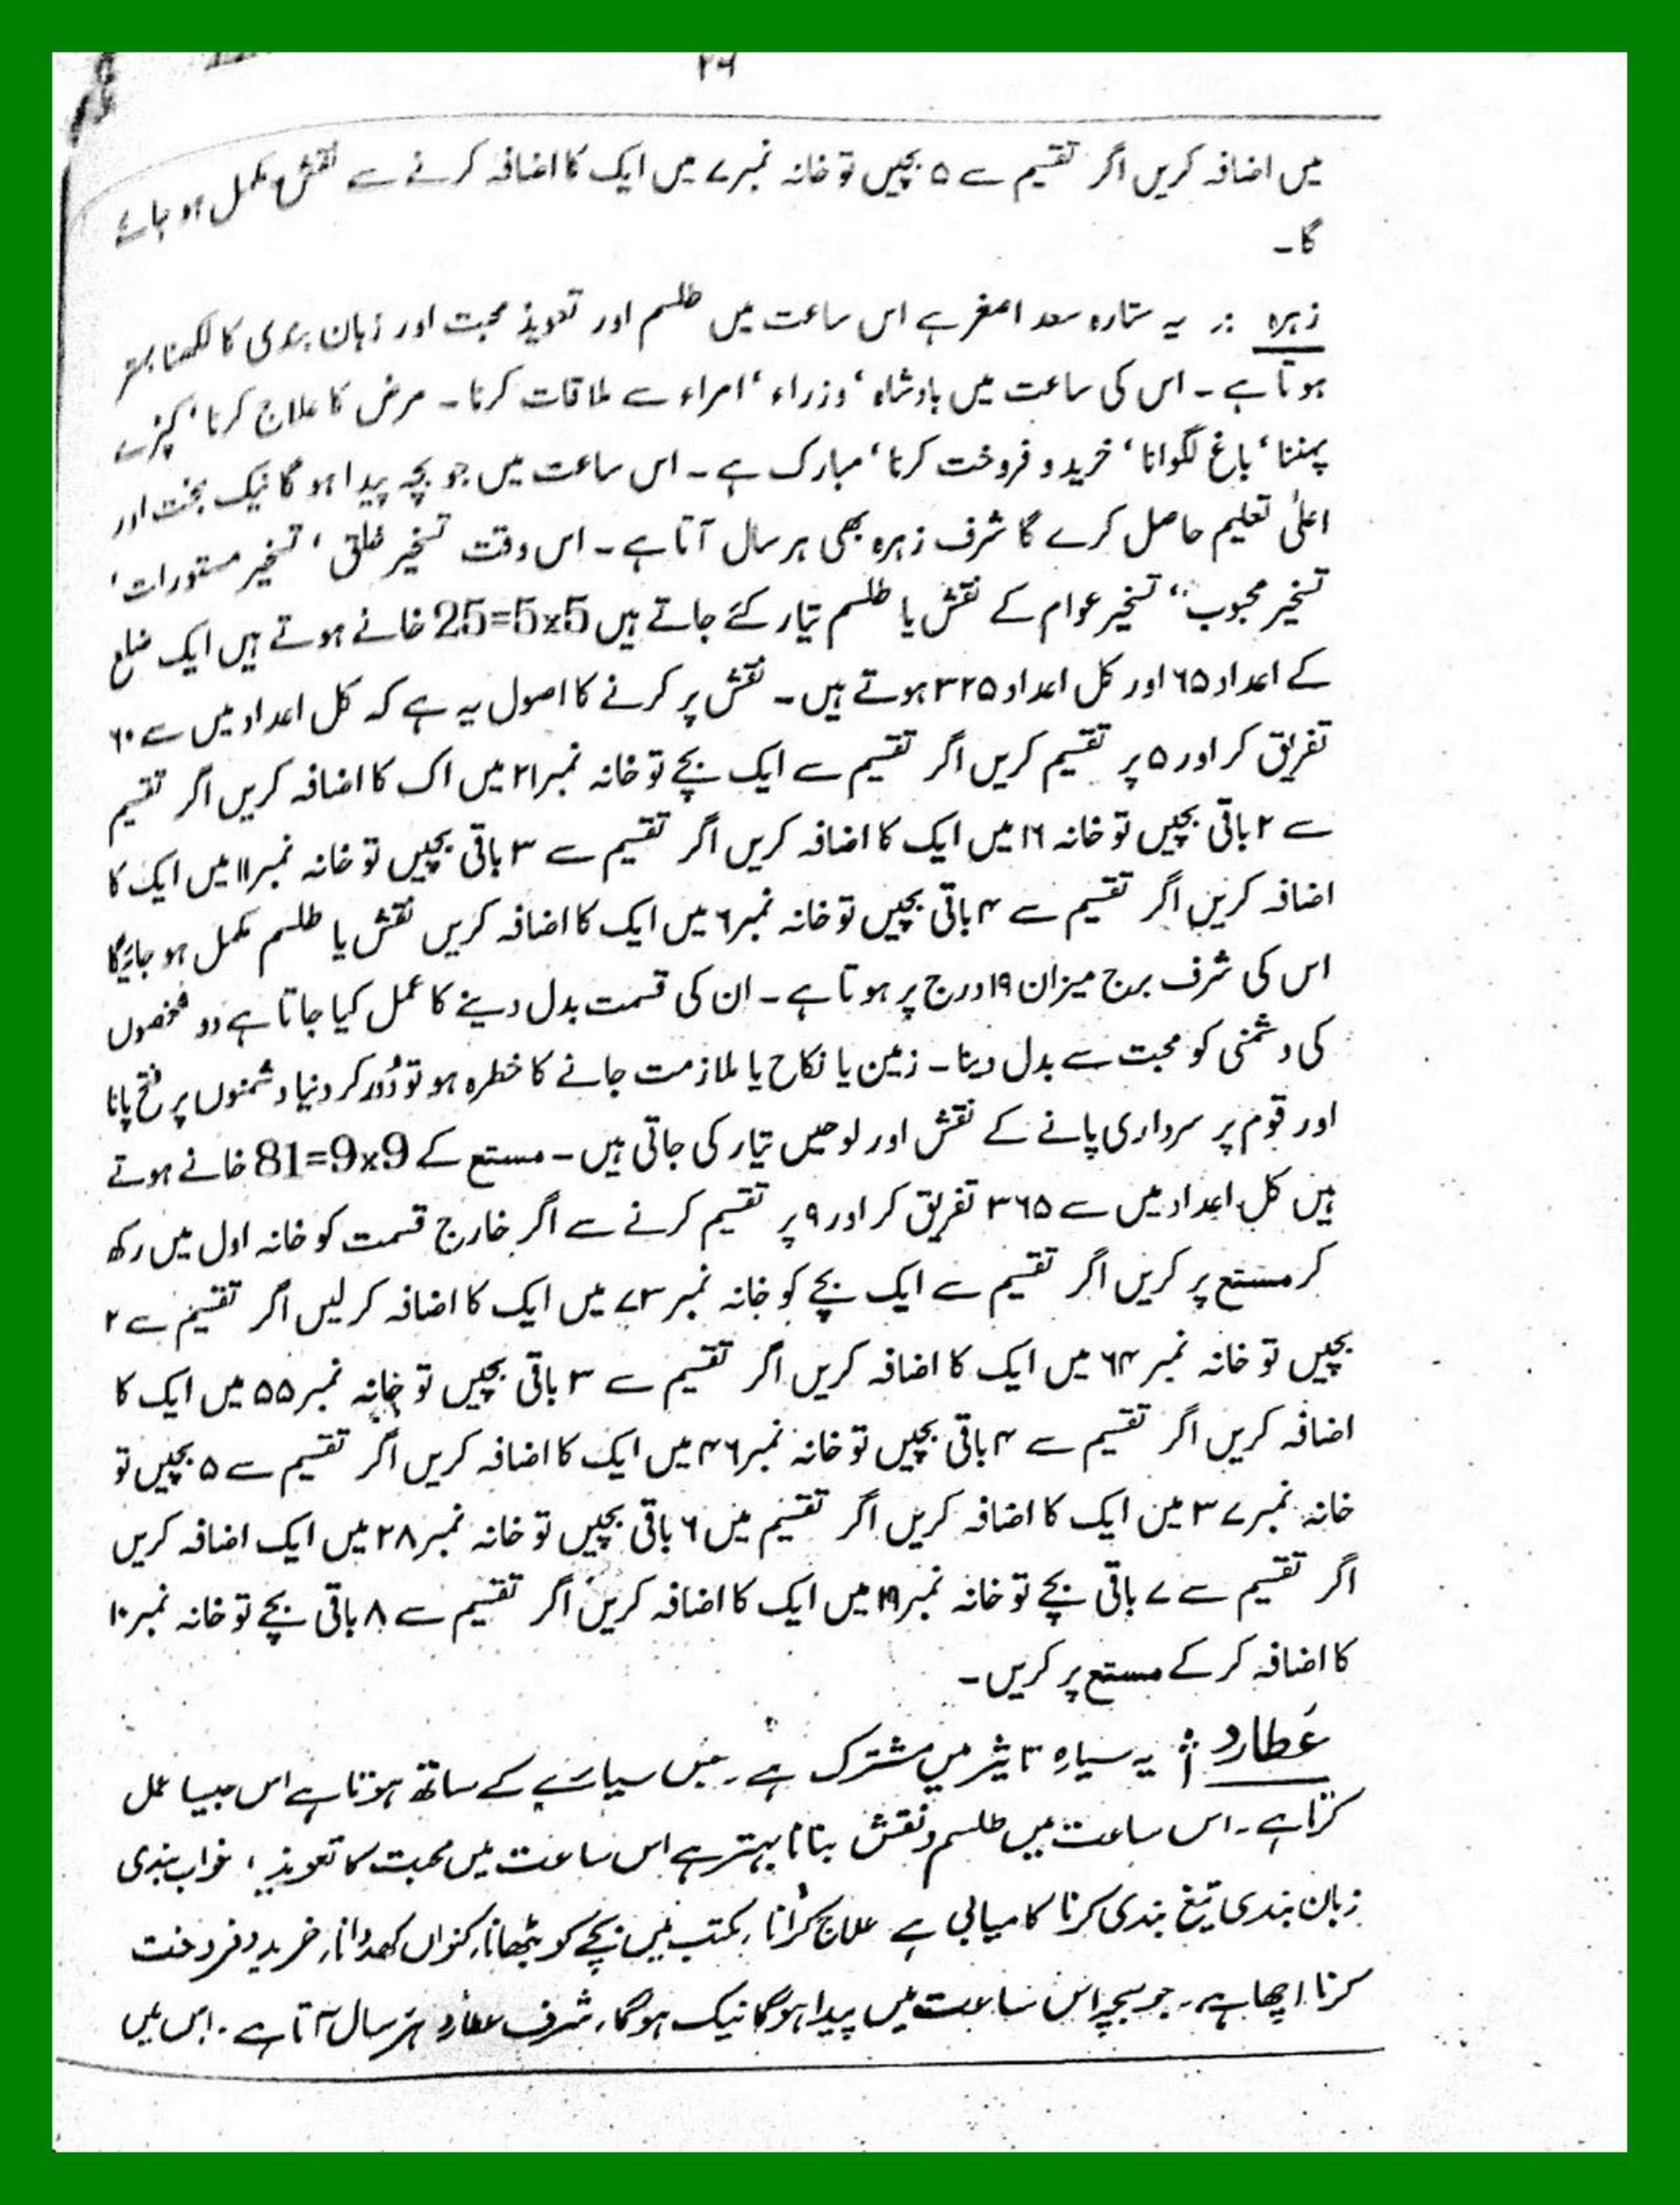 ۲۶
میں اضافہ کریں اگر تقسیم سے ۵ بچیں تو خانہ نمبر ۷ میں ایک کا اضافہ کرنے سے نقش مکمل ہو جائے
گا۔
زہرہ :۔ یہ ستارہ سعد اصغر ہے اس ساعت میں طلسم اور تعویذ محبت اور زبان بندی کا لکھنا بہتر
ہوتا ہے۔ اس کی ساعت میں بادشاہ ‘ وزراء ‘ امراء سے ملاقات کرنا۔ مرض کا علاج کرنا ‘ کپڑے
پہننا ‘ باغ لگوانا ‘ خرید و فروخت کرنا ‘ مبارک ہے۔ اس ساعت میں جو بچہ پیدا ہو گا نیک بخت اور
اعلیٰ تعلیم حاصل کرے گا شرف زہرہ بھی ہر سال آتا ہے۔ اس وقت تسخیر خلق ‘ تسخیر مستورات ‘
تسخیر محبوب ‘‘ تسخیر عوام کے نقش یا طلسم تیار کئے جاتے ہیں 5x5=25 خانے ہوتے ہیں ایک ضلع
کے اعداد ۶۵ اور کل اعداد ۳۲۵ ہوتے ہیں۔ نقش پر کرنے کا اصول یہ ہے کہ کل اعداد میں سے ۶۰
تفریق کر اور ۵ پر تقسیم کریں اگر تقسیم سے ایک بچے تو خانہ نمبر ۲۱ میں اک کا اضافہ کریں اگر تقسیم
سے ۲ باقی بچیں تو خانہ ۱۶ میں ایک کا اضافہ کریں اگر تقسیم سے ۳ باقی بچیں تو خانہ نمبر ۱۱ میں ایک کا
اضافہ کریں اگر تقسیم سے ۴ باقی بچیں تو خانہ نمبر ۶ میں ایک کا اضافہ کریں نقش یا طلسم مکمل ہو جائیگا
اس کی شرف برج میزان ۱۹ درج پر ہوتا ہے۔ ان کی قسمت بدل دینے کا عمل کیا جاتا ہے دو شخصوں
کی دشمنی کو محبت سے بدل دینا۔ زمین یا نکاح یا ملازمت جانے کا خطرہ ہو تو دُور کر دنیا دشمنوں پر فتح پانا
اور قوم پر سرداری پانے کے نقش اور لوحیں تیار کی جاتی ہیں۔ مستع کے 9x9=81 خانے ہوتے
ہیں کل اعداد میں سے ۳۶۵ تفریق کر اور ۹ پر تقسیم کرنے سے اگر خارج قسمت کو خانہ اول میں رکھ
کر مستع پر کریں اگر تقسیم سے ایک بچے کو خانہ نمبر ۷۳ میں ایک کا اضافہ کر لیں اگر تقسیم سے ۲
بچیں تو خانہ نمبر ۶۴ میں ایک کا اضافہ کریں اگر تقسیم سے ۳ باقی بچیں تو خانہ نمبر ۵۵ میں ایک کا
اضافہ کریں اگر تقسیم سے ۴ باقی بچیں تو خانہ نمبر ۴۶ میں ایک کا اضافہ کریں اگر تقسیم سے ۵ بچیں تو
خانہ نمبر ۳۷ میں ایک کا اضافہ کریں اگر تقسیم میں ۶ باقی بچیں تو خانہ نمبر ۲۸ میں ایک اضافہ کریں
اگر تقسیم سے ۷ باقی بچے تو خانہ نمبر ۱۹ میں ایک کا اضافہ کریں اگر تقسیم سے ۸ باقی بچے تو خانہ نمبر ۱۰
کا اضافہ کر کے مستع پر کریں۔
عُطارد : یہ سیارہ تاثیر میں مشترک ہے۔ جس سیارے کے ساتھ ہوتا ہے اس جیسا عمل
کرتا ہے۔ اس ساعت میں طلسم و نقش بنانا بہتر ہے اس ساعت میں محبت کا تعویذ ، خواب بندی
زبان بندی تیغ بندی کرنا کامیابی ہے علاج کرانا ، مکتب میں بچے کو بٹھانا ، کنواں کھدوانا ، خرید و فروخت
کرنا اچھا ہے۔ جو بچہ اس ساعت میں پیدا ہوگا نیک ہوگا ، شرف عطارد ہر سال آتا ہے۔ اس میں